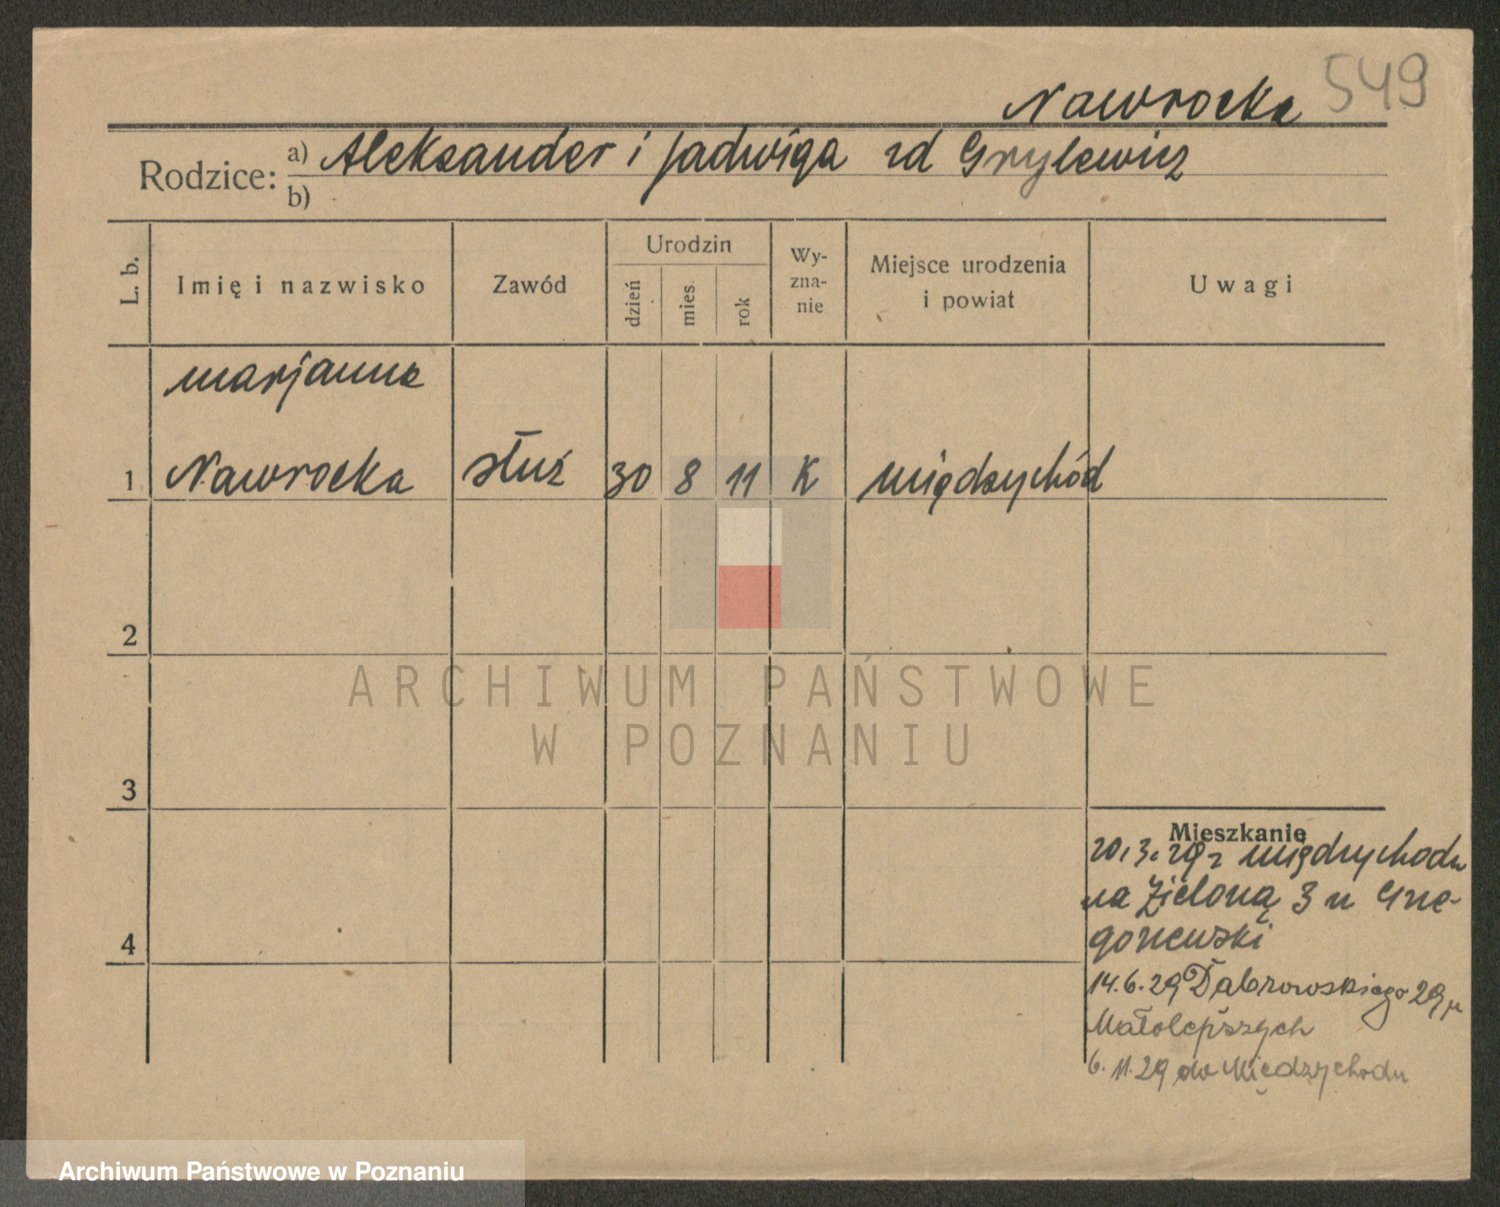 Nawrocka 549
Rodzice: a) Aleksander i Jadwiga zd Grylewicz
b)
L. b.
Imię i nazwisko
Zawód
Urodzin
dzień
mies.
rok
Wy-
zna-
nie
Miejsce urodzenia
i powiat
Uwagi
Marjanna
1 Nawrocka służ 30 8 11 K Międzychód
2
3
4
Mieszkanie
20.3.29 z Międzychodu
na Zieloną 3 u Grze-
gorzewski
14.6.29 Dąbrowskiego 29 u
Małolepszych
6.11.29 do Międzychodu
ARCHIWUM PAŃSTWOWE
W POZNANIU
Archiwum Państwowe w Poznaniu